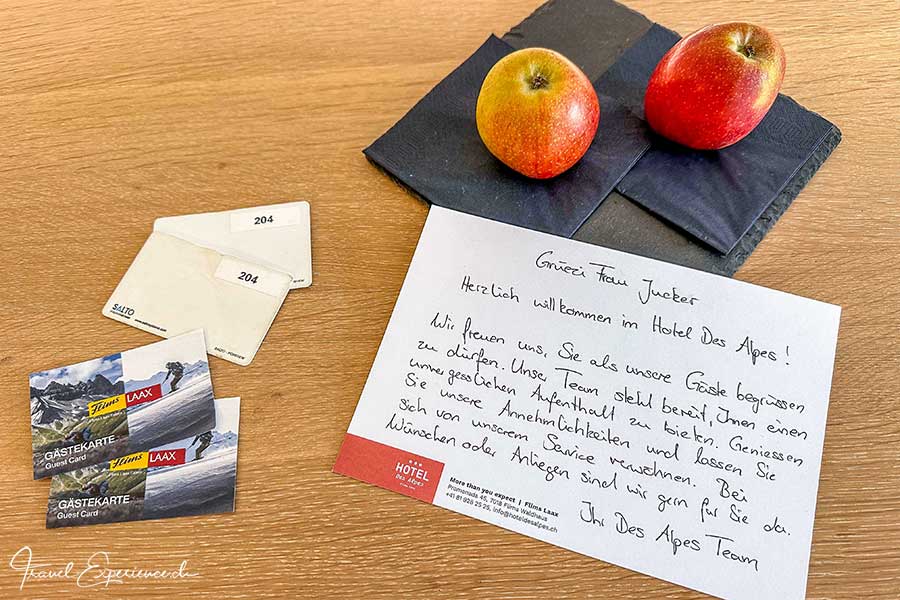 204
204
SALTO
Flims
LAAX
GÄSTEKARTE
Guest Card
Flims
LAAX
GÄSTEKARTE
Guest Card
Grüezi Frau Jucker
Herzlich willkommen im Hotel Des Alpes!
Wir freuen uns, Sie als unsere Gäste begrüssen
zu dürfen. Unser Team steht bereit, Ihnen einen
unvergesslichen Aufenthalt zu bieten. Geniessen
Sie unsere Annehmlichkeiten und lassen Sie
sich von unserem Service verwöhnen. Bei
Wünschen oder Anliegen sind wir gern für Sie da.
Ihr Des Alpes Team
HOTEL
DES ALPES
More than you expect | Flims Laax
Promenada 45, 7018 Flims Waldhaus
+41 81 928 25 25, info@hoteldesalpes.ch
Travel Experience.ch